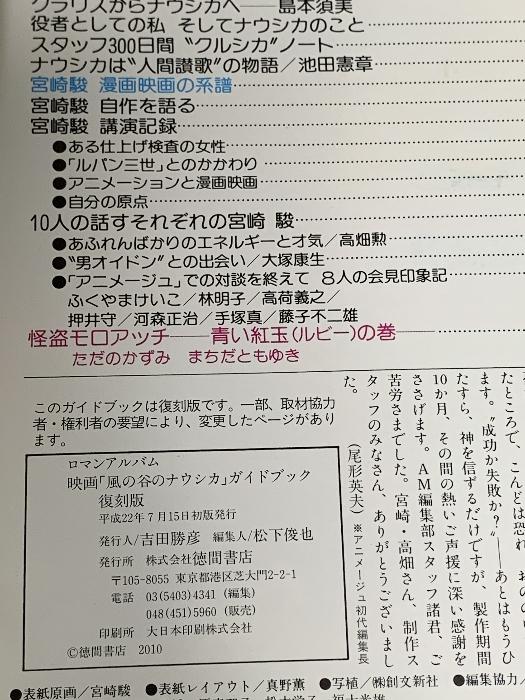 クラリスからナウシカへ──島本須美
役者としての私 そしてナウシカのこと
スタッフ300日間 “クルシカ”ノート
ナウシカは“人間讃歌”の物語／池田憲章
宮崎駿 漫画映画の系譜
宮崎駿 自作を語る
宮崎駿 講演記録
●ある仕上げ検査の女性
●「ルパン三世」とのかかわり
●アニメーションと漫画映画
●自分の原点
10人の話すそれぞれの宮崎 駿
●あふれんばかりのエネルギーとオ気／高畑勲
●“男オイドン”との出会い／大塚康生
●「アニメージュ」での対談を終えて 8人の会見印象記
ふくやまけいこ／林明子／高荷義之／
押井守／河森正治／手塚真／藤子不二雄
怪盗モロアッチ──青い紅玉(ルビー)の巻
ただのかずみ まちだともゆき
たところで、こんどは恐れ
ます。“成功か失敗か?”──あとはもうひ
たすら、神を信ずるだけですが、製作期間
10か月、その間の熱いご声援に深い感謝を
ささげます。AM編集部スタッフ諸君、ご
苦労さまでした。宮崎・高畑さん、制作ス
タッフのみなさん、ありがとうございまし
た。
(尾形英夫)
※アニメージュ初代編集長
このガイドブックは復刻版です。一部、取材協力
者・権利者の要望により、変更したページがあり
ます。
ロマンアルバム
映画「風の谷のナウシカ」ガイドブック
復刻版
平成22年7月15日初版発行
発行人／吉田勝彦 編集人／松下俊也
発行所 株式会社徳間書店
〒105-8055 東京都港区芝大門2-2-1
電話 03(5403)4341 (編集)
048(451)5960 (販売)
印刷所 大日本印刷株式会社
©徳間書店 2010
●表紙原画／宮崎駿 ●表紙レイアウト／真野薫 ●写植／㈱創文新社 ●編集協力／